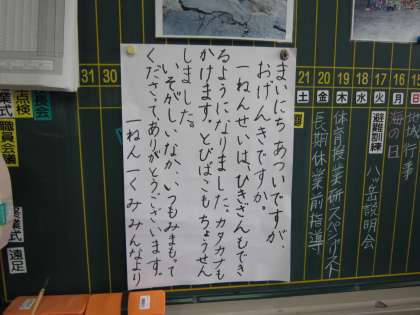 まいにち あついですが、
おげんきですか。
一ねんせいは、ひきざんもでき
るようになりました。カタカナも
かけます。とびばこも ちょうせん
しました。
いそがしいなか いつもみまもって
くださって、ありがとうございます。
一ねん一くみ みんなより
31
30
21
20
19
18
17
16
15
土
金
木
水
火
月
日
長期休業前指導
避難訓練
八ヶ岳説明会
海の日
地
行事
点検
職員会議
遠足